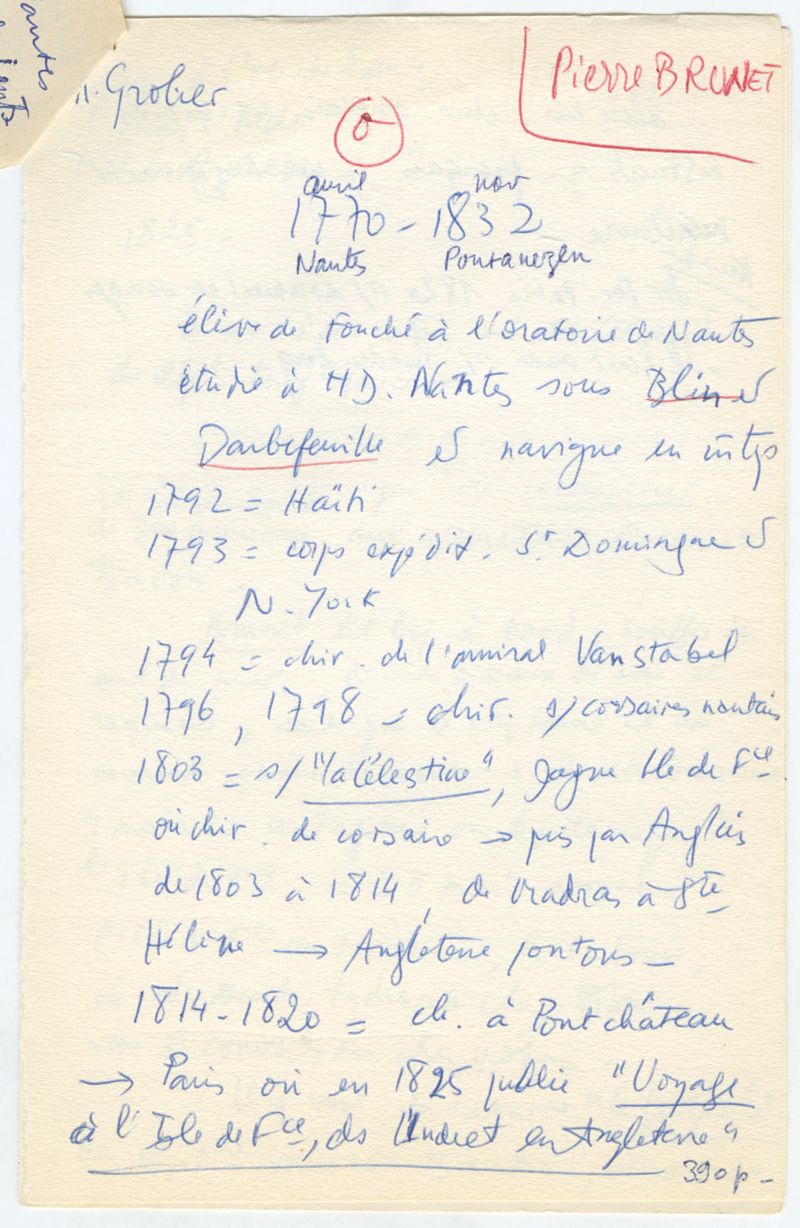 antes
Pierre BRUNET
Grolier
avril nov
1770 - 1832
Nantes Pontanezen
élève de Fouché à l'oratoire de Nantes
étudie à HD. Nantes sous Blin et
Darbefeuille et navigue en
1792 = Haïti
1793 = corps expédit. St Domingue et
N. York
1794 = chir. de l'amiral Vanstabel
1796, 1798 = chir. s/corsaires nantais
1803 = s/ "la Célestine", gagne Ile de Fce
où chir. de corsaire → pris par Anglais
de 1803 à 1814, de Madras à Ste
Hélène → Angleterre pontons -
1814-1820 = ch. à Pontchâteau
→ Paris où en 1825 publie "Voyage
à l'Isle de Fce, ds l'Inde et en Angleterre"
390 p -